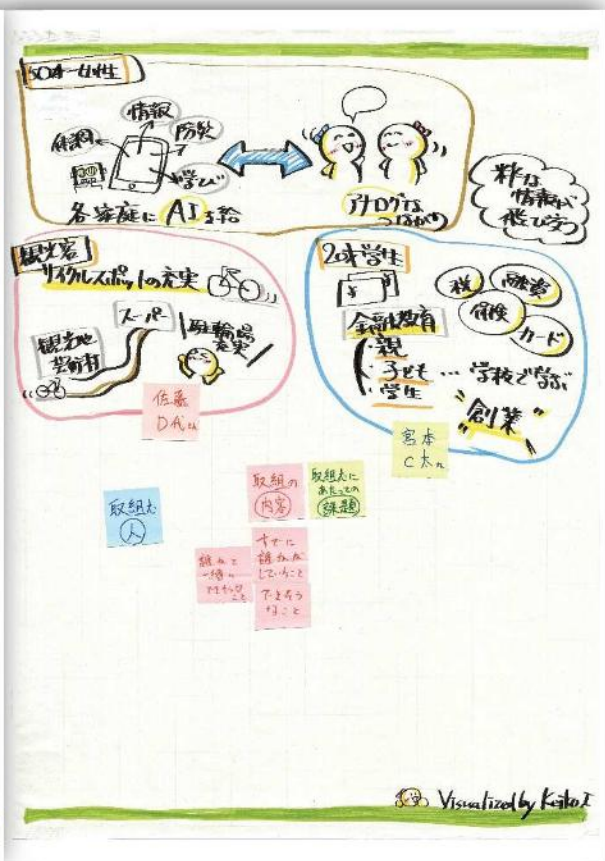 50才〜女性
情報
体調
防災
学び
各家庭にAI支給
アナログな
つながり
情報が
飛び交う
観光客
サイクルスポットの充実
スーパー
観光地
芸術村
駐輪場
充実
佐藤
20才学生
税
融資
保険
カード
金融教育
・親
・子ども…学校で学ぶ
・学生
"創業"
宮本
C太
取組む
人
取組の
内容
取組むに
あたっての
課題
誰かと
一緒に
できそうな
こと
すでに
誰かが
していること
できそう
なこと
Visualized by Keiko I